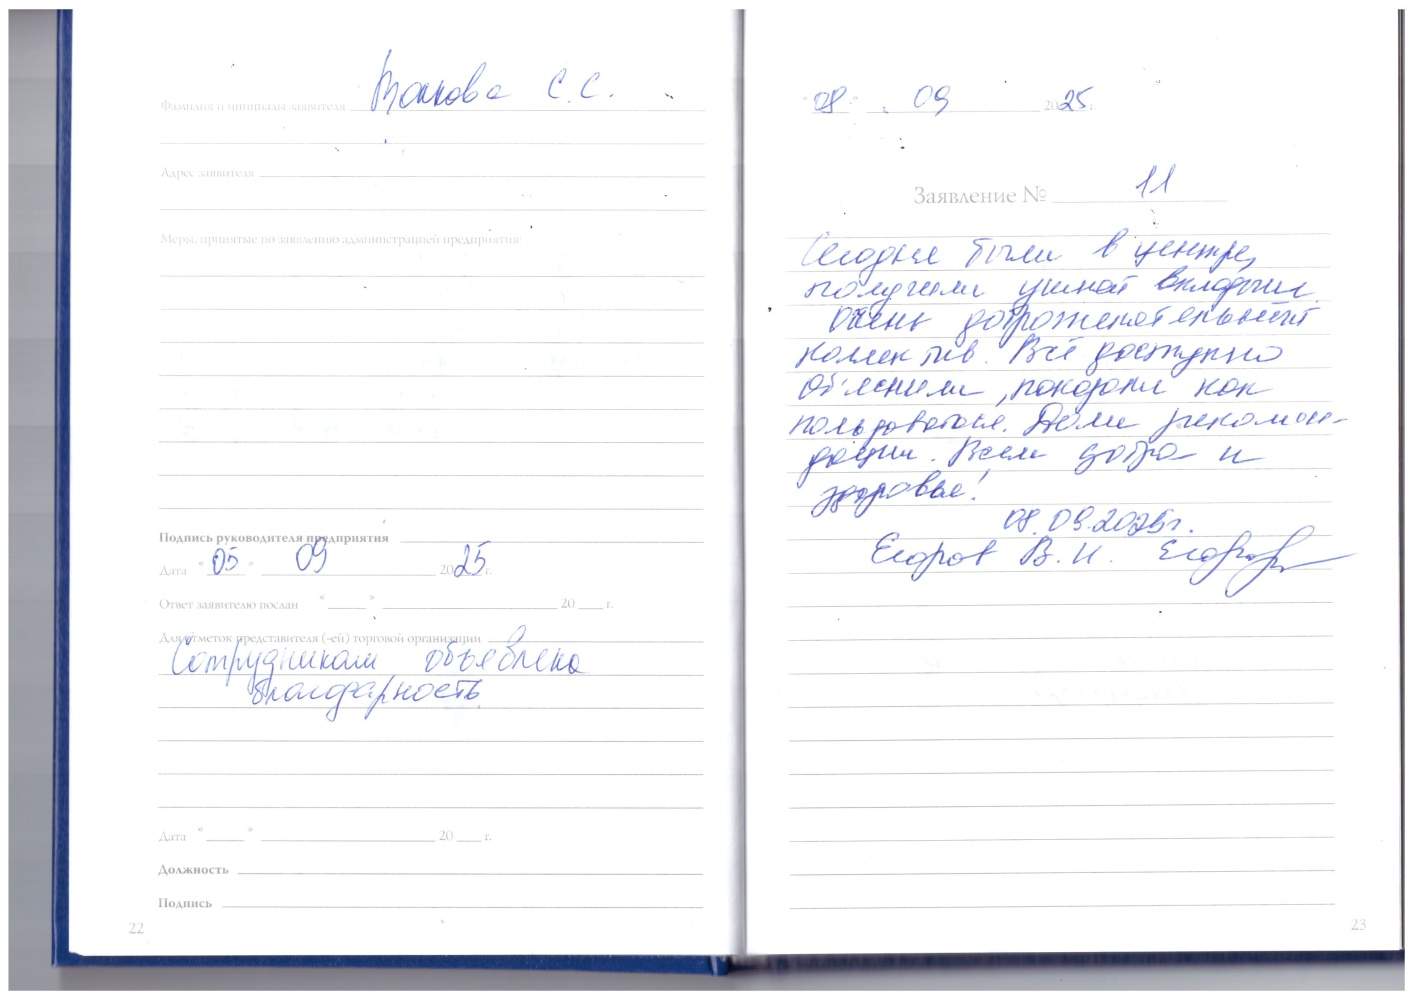 Фамилия и инициалы заявителя С. С.
Адрес заявителя
Меры, принятые по заявлению администрацией предприятия
Подпись руководителя предприятия
Дата "05" 09 2025 г.
Ответ заявителю послан "___" ___ 20 ___ г.
Для отметок представителя (-ей) торговой организации
Сотрудникам объявлена
благодарность
Дата "___" ___ 20 ___ г.
Должность
Подпись
22
"08" 09 2025 г.
Заявление № 11
Сегодня были в центре,
получили ушной вкладыш.
Очень доброжелательный
коллектив. Всё доступно
объяснили, показали как
пользоваться. Дали рекомен-
дации. Всем добра и
здоровья!
08.09.2025г.
Егоров В. И.
23